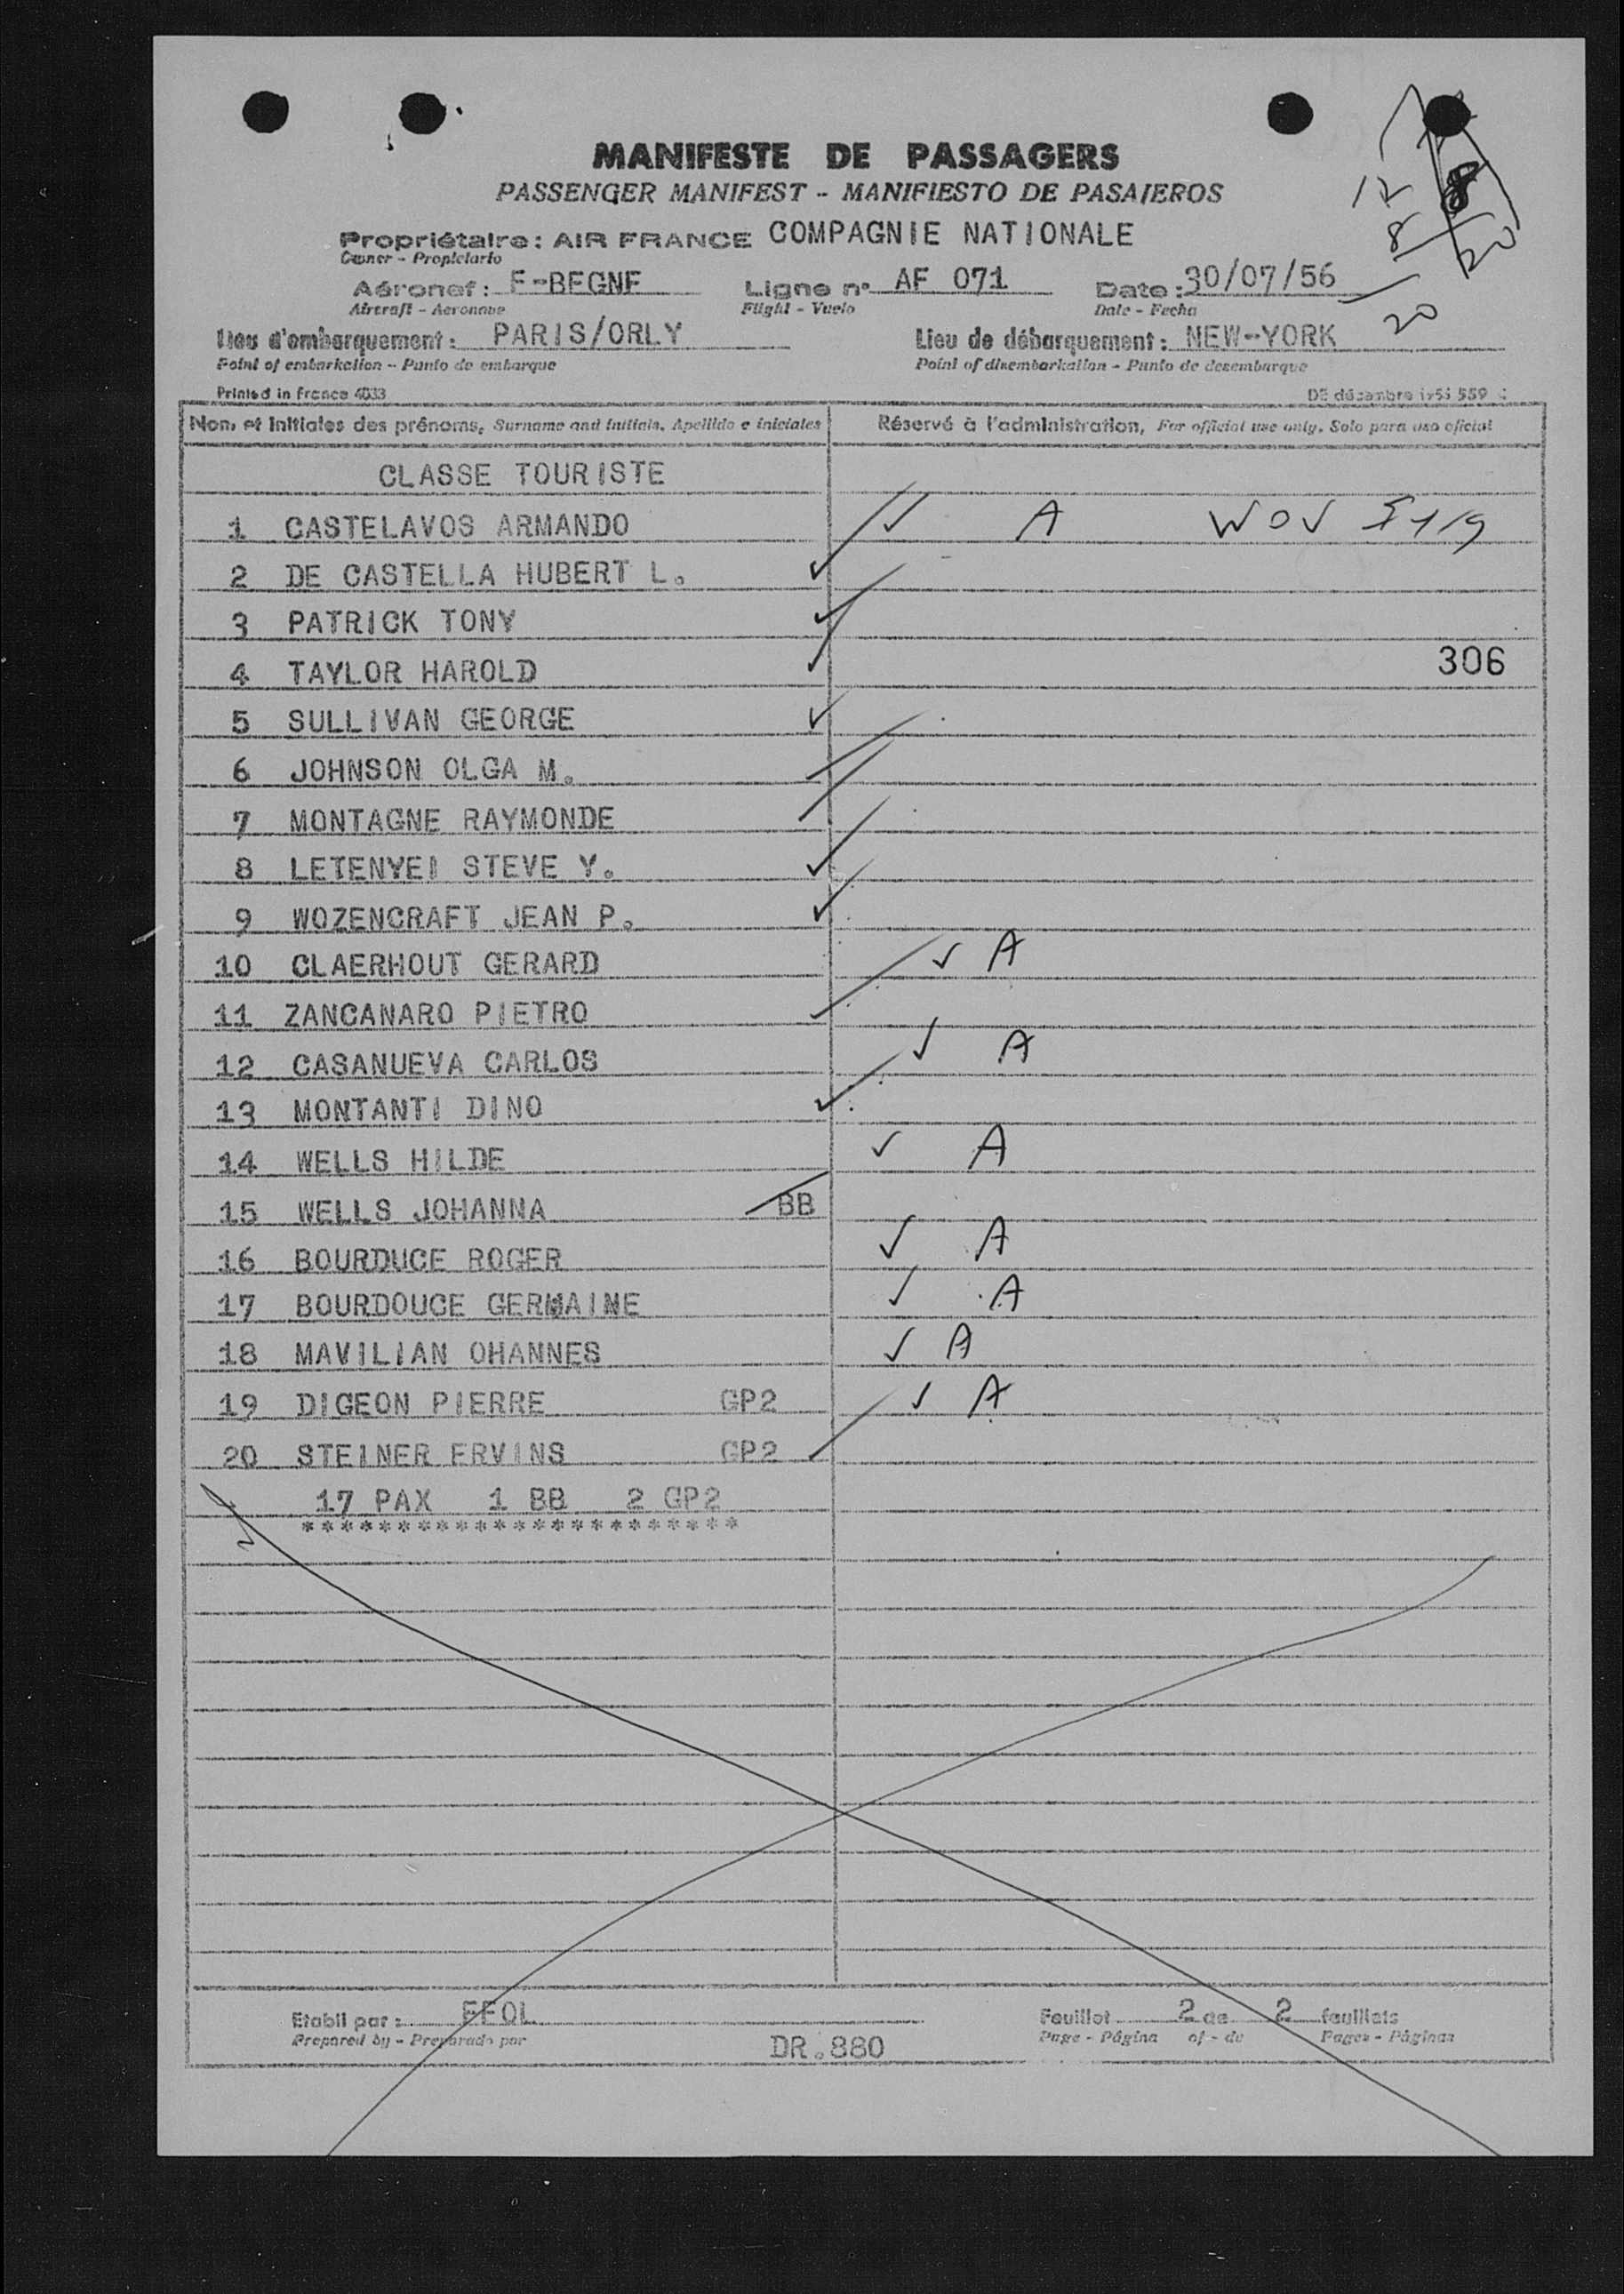 MANIFESTE DE PASSAGERS
PASSENGER MANIFEST - MANIFIESTO DE PASAJEROS
Propriétaire: AIR FRANCE COMPAGNIE NATIONALE
Owner - Propietario
Aéronef: F-BEGNE Ligne n° AF 071 Date: 30/07/56
Aircraft - Aeronave Flight - Vuelo Date - Fecha
12
8
20
8
20
Lieu d'embarquement: PARIS/ORLY Lieu de débarquement: NEW-YORK
Point of embarkation - Punto de embarque Point of disembarkation - Punto de desembarque
Printed in France 4033 DE décembre 559
Nom et initiales des prénoms, Surname and initials, Apellido e iniciales Réservé à l'administration, For official use only, Solo para uso oficial
CLASSE TOURISTE
1 CASTELAVOS ARMANDO ✓ A WOV
2 DE CASTELLA HUBERT L.
3 PATRICK TONY
4 TAYLOR HAROLD 306
5 SULLIVAN GEORGE
6 JOHNSON OLGA M.
7 MONTAGNE RAYMONDE
8 LETENYEI STEVE Y.
9 WOZENCRAFT JEAN P.
10 CLAERHOUT GERARD ✓ A
11 ZANCANARO PIETRO
12 CASANUEVA CARLOS ✓ A
13 MONTANTI DINO
14 WELLS HILDE ✓ A
15 WELLS JOHANNA BB
16 BOURDUCE ROGER ✓ A
17 BOURDOUCE GERMAINE ✓ A
18 MAVILIAN OHANNES ✓ A
19 DIGEON PIERRE GP2 ✓ A
20 STEINER ERVINS GP2
17 PAX 1 BB 2 GP2
***********************
Etabli par: EFOL Feuillet 2 de 2 feuillets
Prepared by - Preparado por DR.880 Page - Página of - de Pages - Páginas